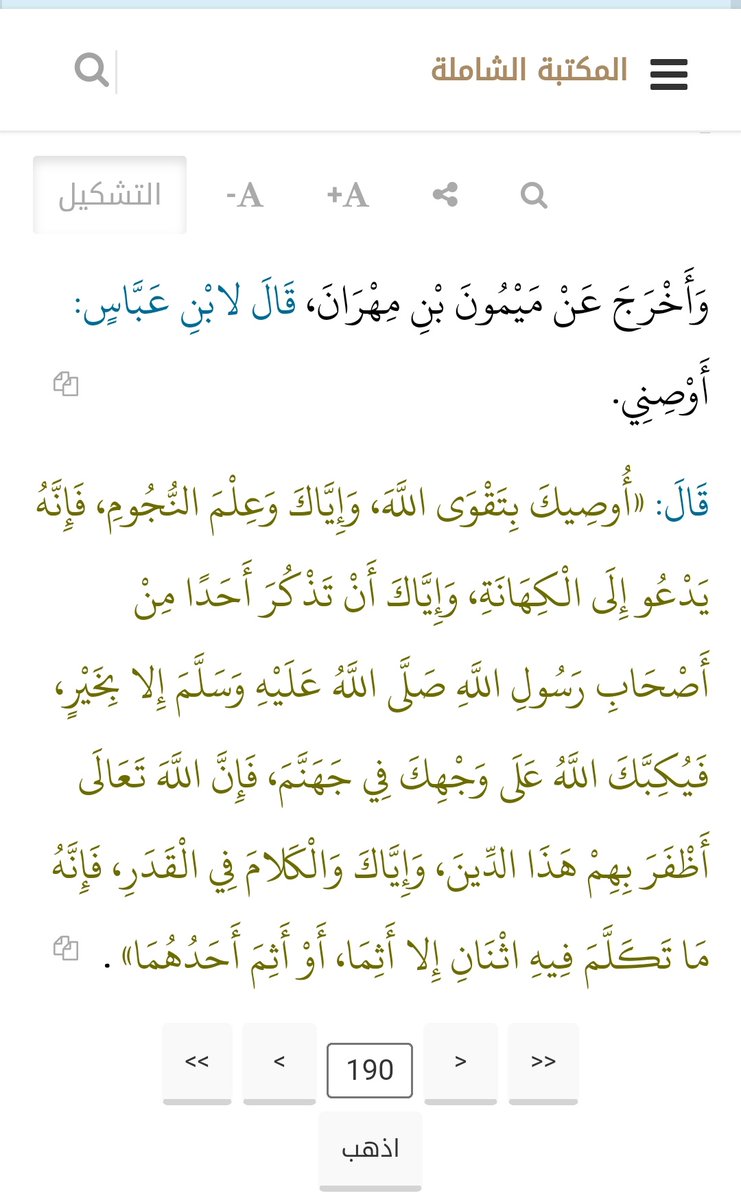 المكتبة الشاملة
التشكيل
-A
+A
وَأَخْرَجَ عَنْ مَيْمُونَ بْنِ مِهْرَانَ، قَالَ لابْنِ عَبَّاسٍ:
أَوْصِنِي.
قَالَ: «أُوصِيكَ بِتَقْوَى اللَّهَ، وَإِيَّاكَ وَعِلْمَ النُّجُومِ، فَإِنَّهُ
يَدْعُو إِلَى الْكِهَانَةِ، وَإِيَّاكَ أَنْ تَذْكُرَ أَحَدًا مِنْ
أَصْحَابِ رَسُولِ اللَّهِ صَلَّى اللَّهُ عَلَيْهِ وَسَلَّمَ إِلا بِخَيْرٍ،
فَيُكِبَّكَ اللَّهُ عَلَى وَجْهِكَ فِي جَهَنَّمَ، فَإِنَّ اللَّهَ تَعَالَى
أَظْفَرَ بِهِمْ هَذَا الدِّينَ، وَإِيَّاكَ وَالْكَلامَ فِي الْقَدَرِ، فَإِنَّهُ
مَا تَكَلَّمَ فِيهِ اثْنَانِ إِلا أَثِمَا، أَوْ أَثِمَ أَحَدُهُمَا» .
<< < 190 > >>
اذهب